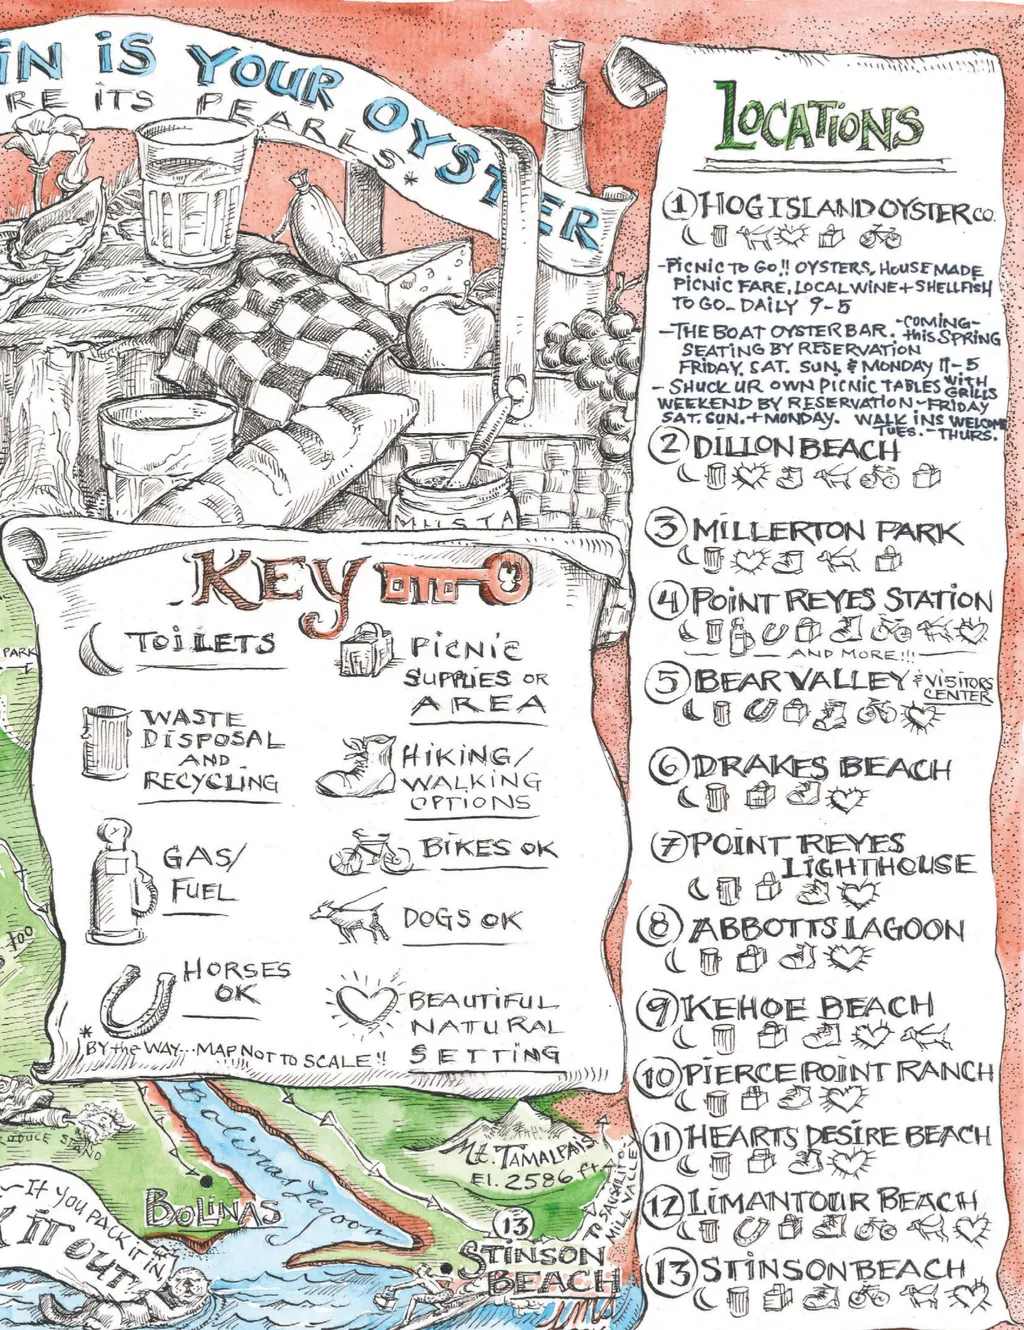 IN IS YOUR OYSTER
RE ITS PEARLS*
MUSTA
LOCATIONS
1 HOG ISLAND OYSTER CO.
-PICNIC TO GO!! OYSTERS, HOUSEMADE
PICNIC FARE, LOCAL WINE + SHELLFISH
TO GO- DAILY 9-5
-THE BOAT OYSTER BAR. -COMING-
this SPRING
SEATING BY RESERVATION
FRIDAY, SAT. SUN. & MONDAY 11-5
- SHUCK UR OWN PICNIC TABLES WITH
GRILLS
WEEKEND BY RESERVATION-FRIDAY
SAT. SUN. + MONDAY. WALK INS WELCOME
TUES. - THURS.
2 DILLON BEACH
3 MILLERTON PARK
4 POINT REYES STATION
AND MORE!!!
5 BEAR VALLEY & VISITORS
CENTER
6 DRAKES BEACH
7 POINT REYES
LIGHTHOUSE
8 ABBOTTS LAGOON
9 KEHOE BEACH
10 PIERCE POINT RANCH
11 HEARTS DESIRE BEACH
12 LIMANTOUR BEACH
13 STINSON BEACH
KEY
TOILETS
WASTE
DISPOSAL
AND
RECYCLING
GAS/
FUEL
HORSES
OK
PICNIC
SUPPLIES OR
AREA
HIKING/
WALKING
OPTIONS
BIKES OK
DOGS OK
BEAUTIFUL
NATURAL
SETTING
*
BY the WAY...MAP NOT TO SCALE!!
PARK
STAND
Bolinas Lagoon
BOLINAS
Mt. TAMALPAIS
El. 2586 ft.
TO SAUSALITO
MILL VALLEY
13
STINSON
BEACH
-IF YOU PACK IT IN,
K IT OUT!